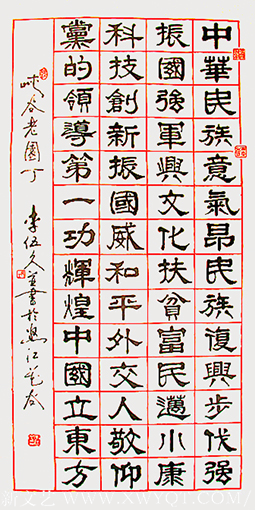 中華民族意氣昂民族復興步伐强
振國强軍興文化扶貧富民邁小康
科技創新振國威和平外交人敬仰
黨的領導第一功輝煌中國立東方
峽谷老園丁
李伍久並書於怒江花谷